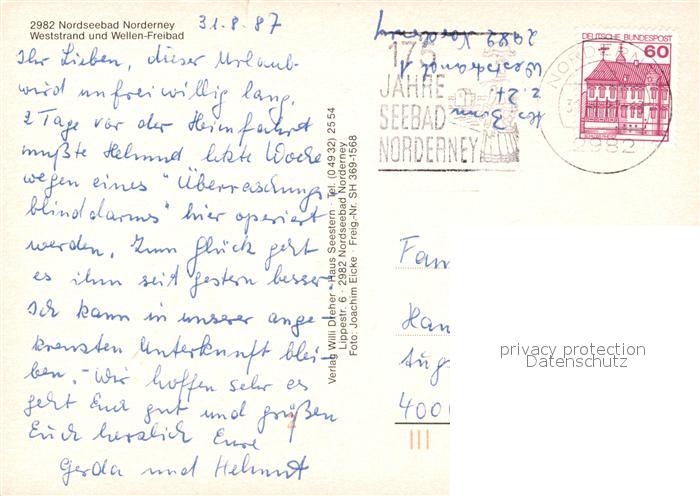 2982 Nordseebad Norderney
Weststrand und Wellen-Freibad
31.8.87
Ihr Lieben, dieser Urlaub
wird unfreiwillig lang,
2 Tage vor der Heimfahrt
mußte Helmut letzte Woche
wegen eines "Überraschungs-
blinddarms" hier operiert
werden. Zum Glück geht
es ihm seit gestern besser.
Ich kann in unserer ange-
kreuzten Unterkunft blei-
ben. - Wir hoffen sehr es
geht Euch gut und grüßen
Euch herzlich Eure
Gerda und Helmut
Verlag Willi Dreher · Haus Seestern · Tel. (0 49 32) 25 54
Lippestr. 6 · 2982 Nordseebad Norderney
Foto: Joachim Eicke · Freig.-Nr. SH 369-1568
175
JAHRE
SEEBAD
NORDERNEY
z. Zt.
2982
DEUTSCHE BUNDESPOST
60
NORDERNEY
2982
Fam
Han
Aug
400
privacy protection
Datenschutz